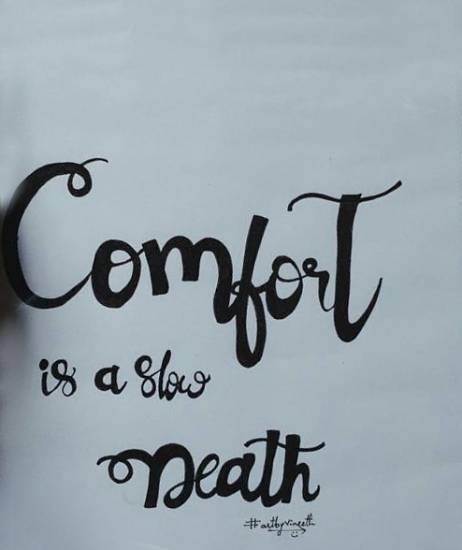 Comfort
is a slow
Death
#artbyvineeth